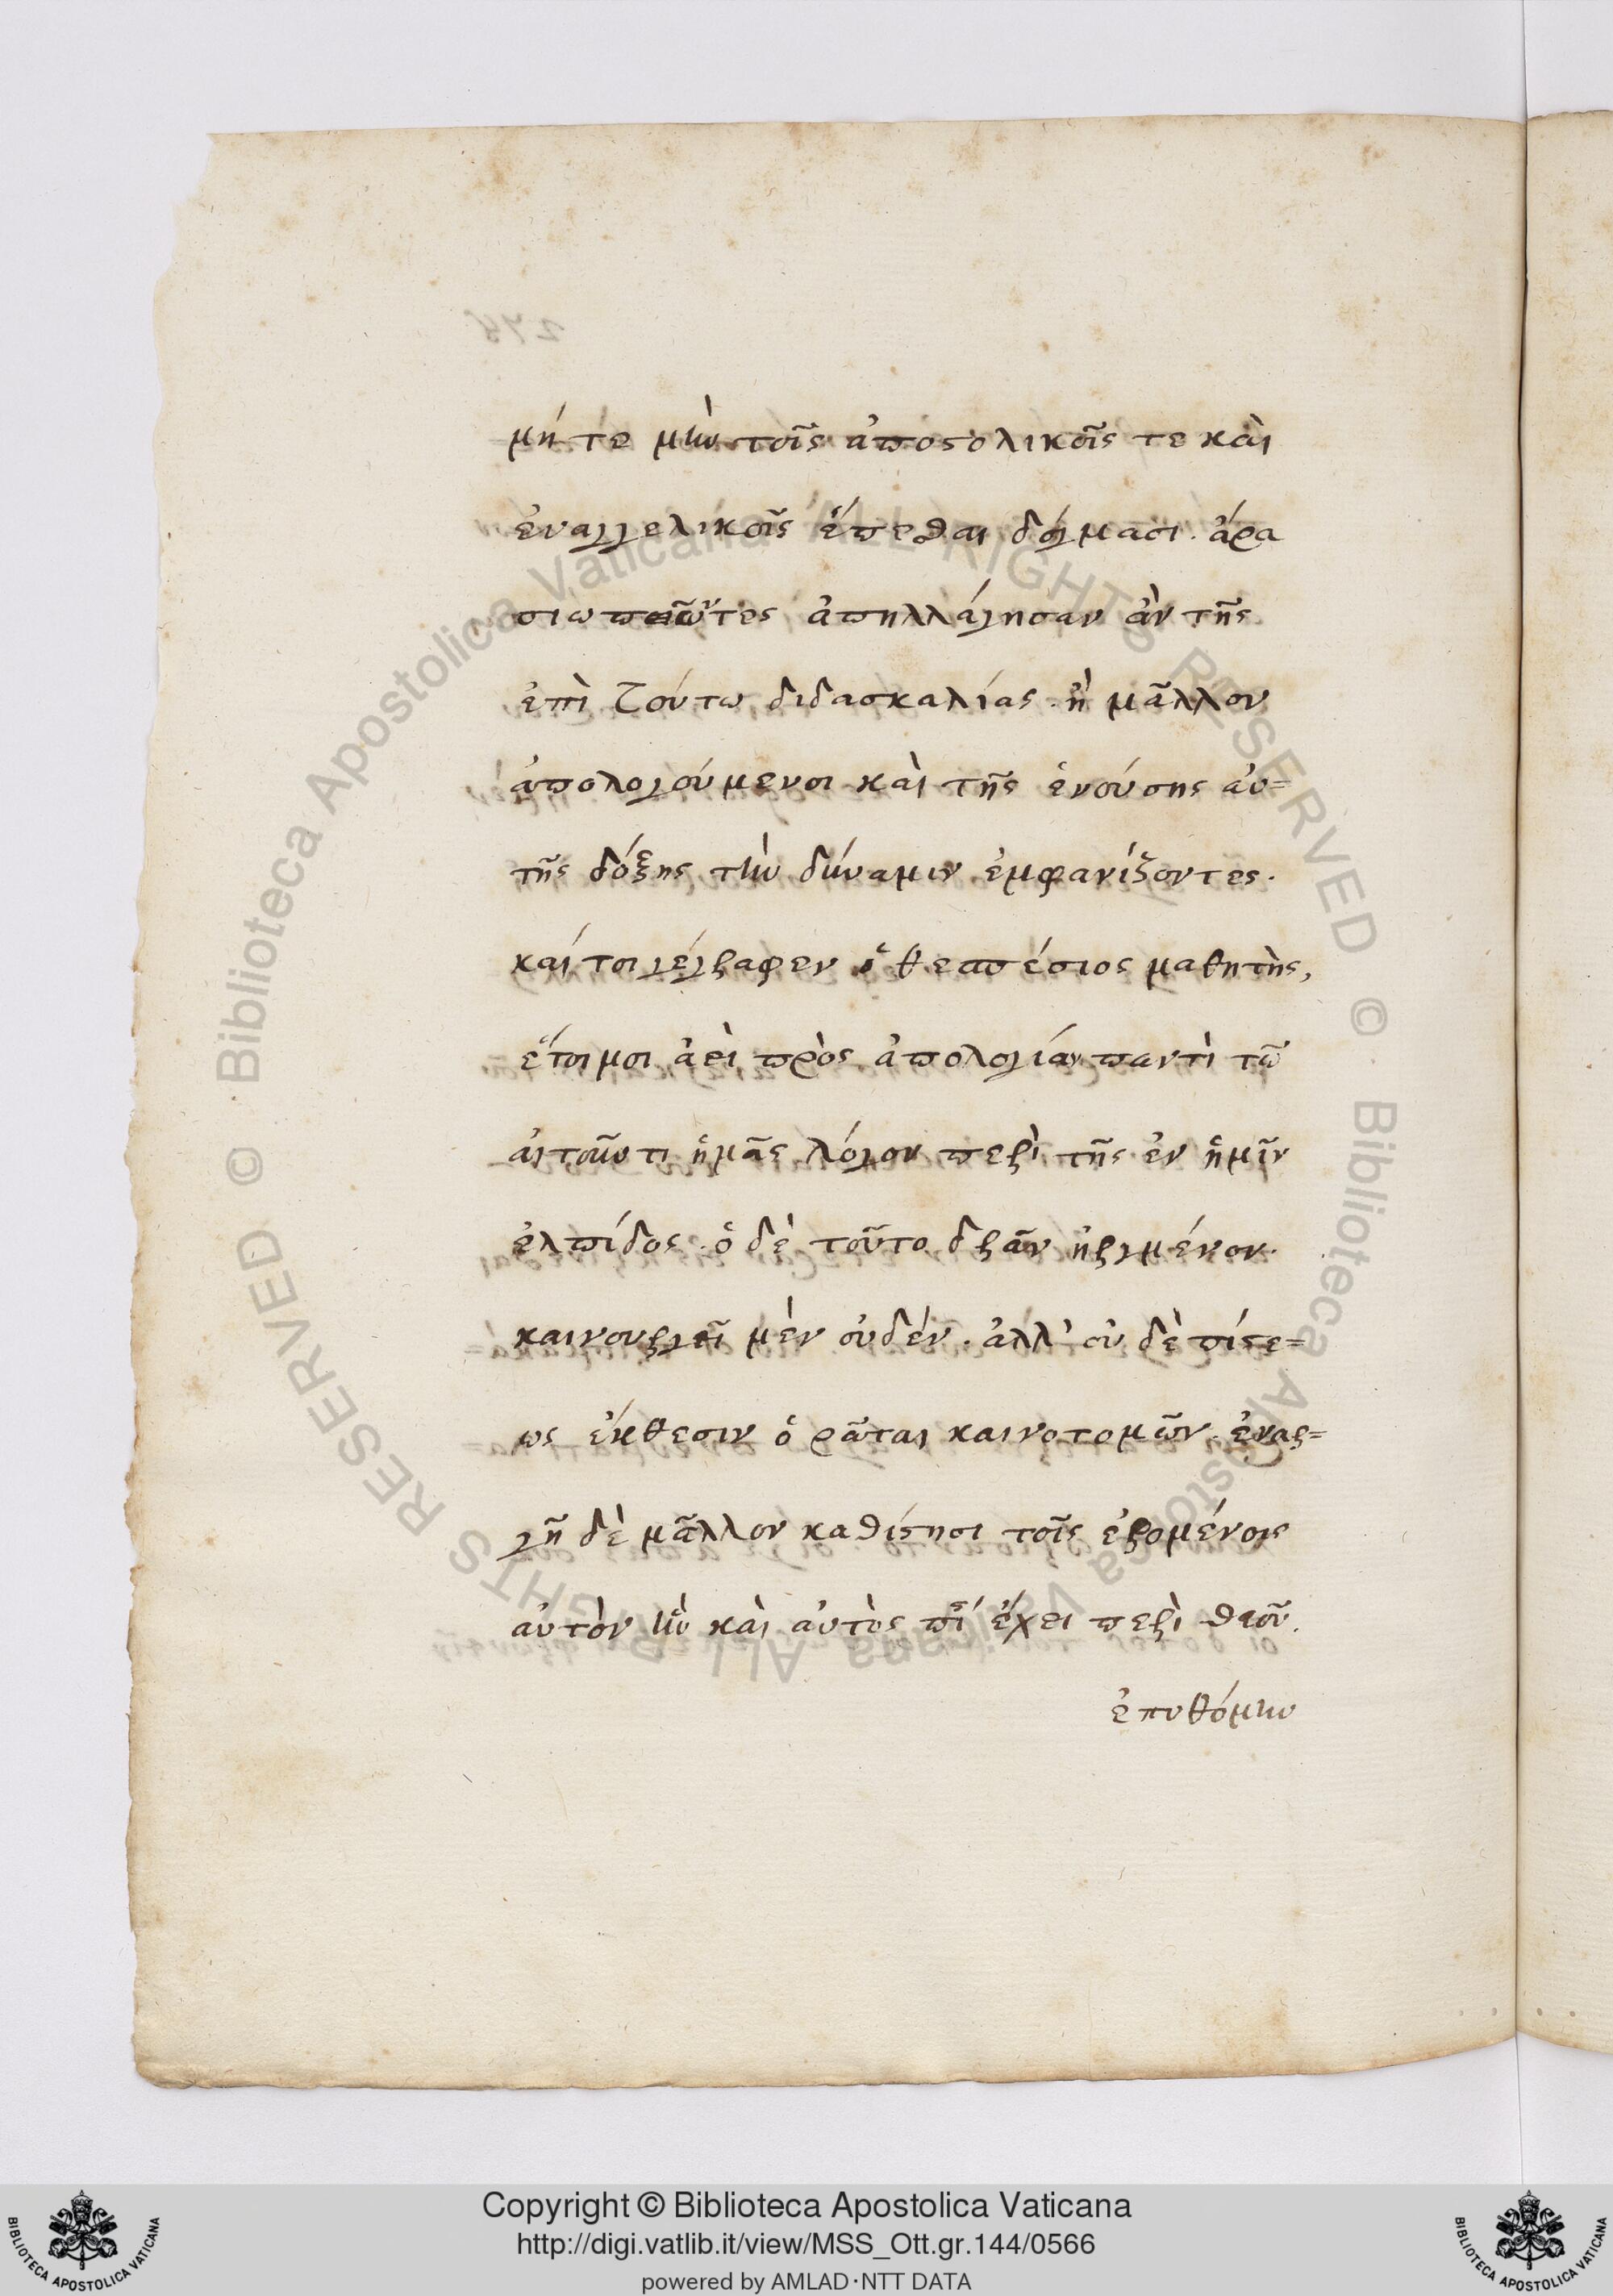 μήτε μὴν τοῖς ἀποστολικοῖς τε καὶ
εὐαγγελικοῖς ἕπεσθαι δόγμασι. ἆρα
σιωπῶντες ἀπηλλάγησαν ἂν τῆς
ἐπὶ τούτω διδασκαλίας. ἢ μᾶλλον
ἀπολογούμενοι καὶ τῆς ἐνούσης αὐ=
τῆς δόξης τὴν δύναμιν ἐμφανίζοντες.
καίτοι γέγραφεν ὁ θεσπέσιος μαθητὴς,
ἕτοιμοι ἀεὶ πρὸς ἀπολογίαν παντὶ τῶ
αἰτοῦντι ἡμᾶς λόγον περὶ τῆς ἐν ἡμῖν
ἐλπίδος. ὁ δὲ τοῦτο δρᾶν ἠργμένον.
καινουργεῖ μὲν οὐδέν. ἀλλ' οὐ δὲ πίστε=
ως ἔκθεσιν ὁρᾶται καινοτομῶν. ἐναρ=
γῆ δὲ μᾶλλον καθίστησι τοῖς ἐρομένοις
αὐτὸν ἣν καὶ αὐτὸς ἔχει περὶ θεοῦ.
ἐπυθόμην
275
© Biblioteca Apostolica Vaticana ALL RIGHTS RESERVED © Biblioteca Apostolica Vaticana ALL RIGHTS RESERVED
Copyright © Biblioteca Apostolica Vaticana
http://digi.vatlib.it/view/MSS_Ott.gr.144/0566
powered by AMLAD·NTT DATA
BIBLIOTECA APOSTOLICA VATICANA
BIBLIOTECA APOSTOLICA VATICANA